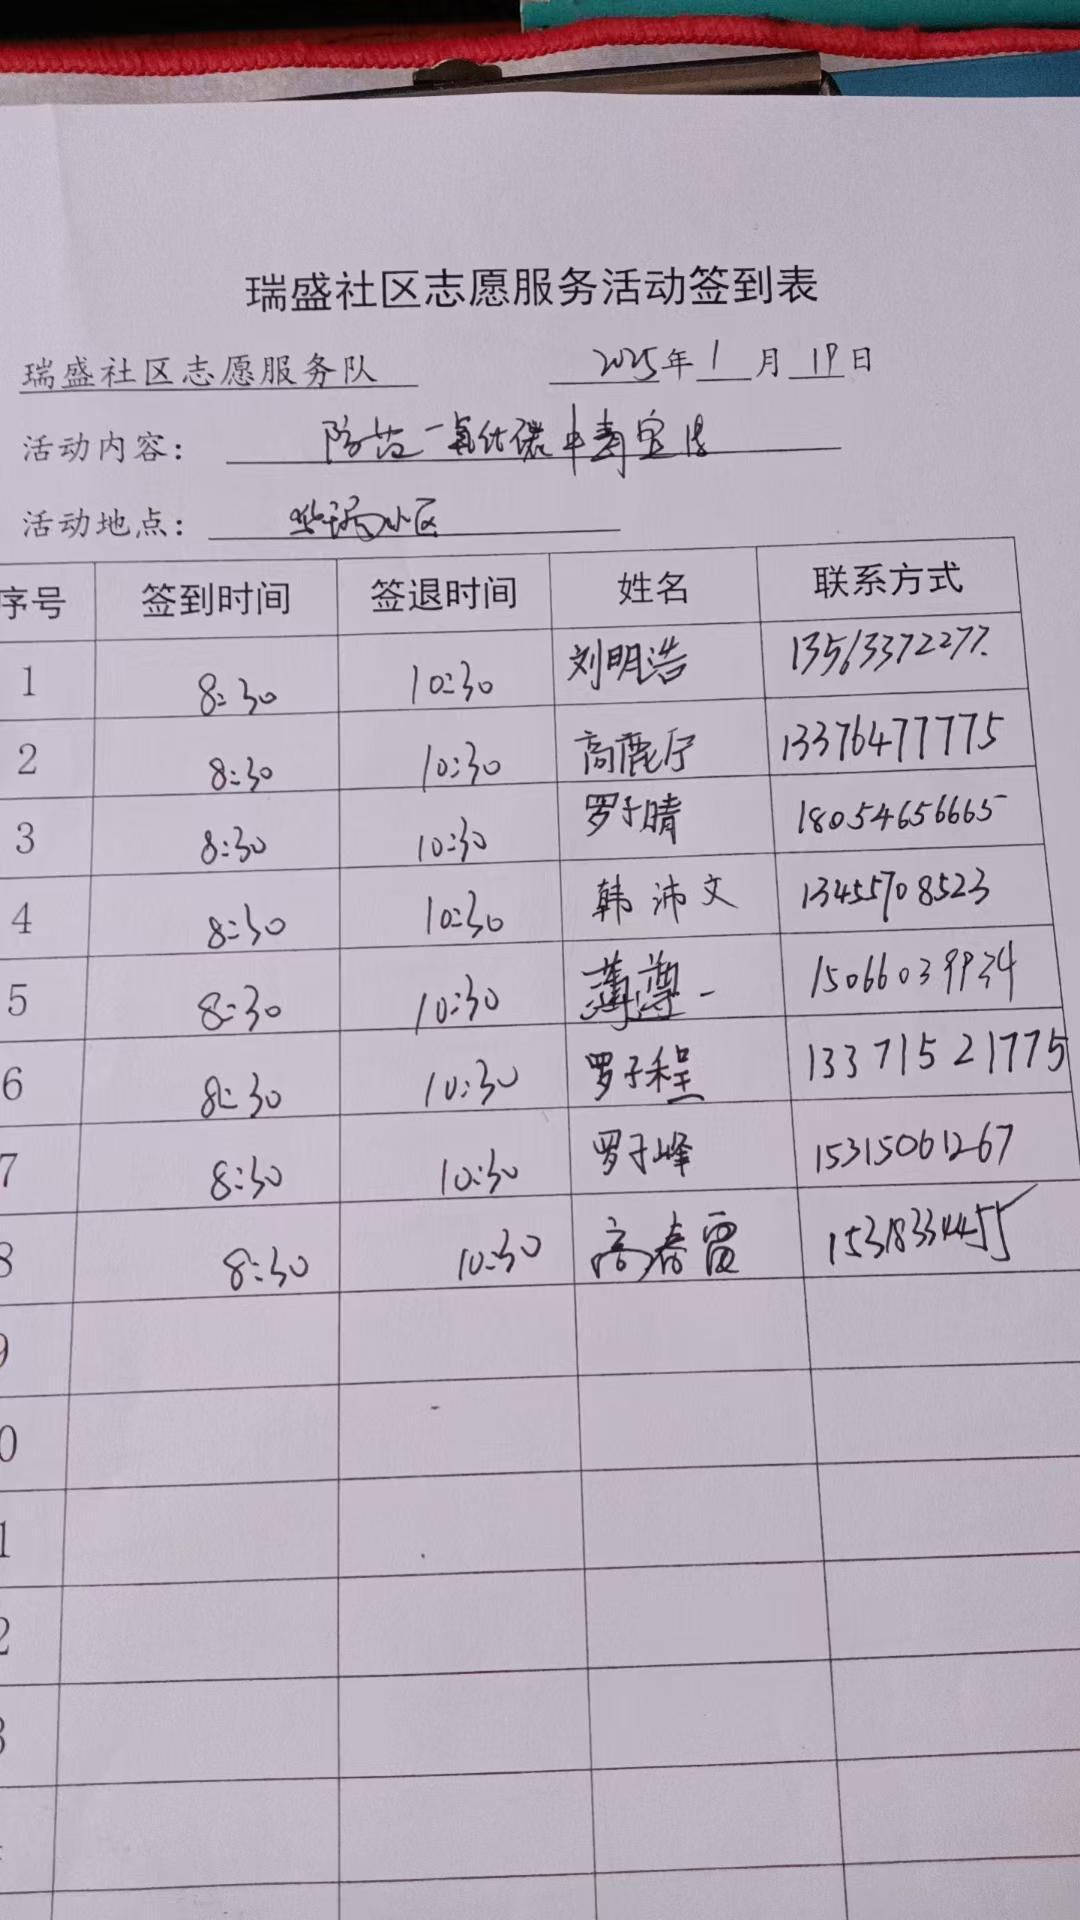 瑞盛社区志愿服务活动签到表
瑞盛社区志愿服务队 2025年1月19日
活动内容: 防范一氧化碳中毒宣传
活动地点: 小区
序号 签到时间 签退时间 姓名 联系方式
1 8:30 10:30 刘明浩 13563372277
2 8:30 10:30 高鹿宁 13376477775
3 8:30 10:30 罗子晴 18054656665
4 8:30 10:30 韩沛文 13455708523
5 8:30 10:30 薄尊一 15066039934
6 8:30 10:30 罗子程 13371521775
7 8:30 10:30 罗子峰 15315061267
8 8:30 10:30 高春霞 15318334455
9
0
1
2
3